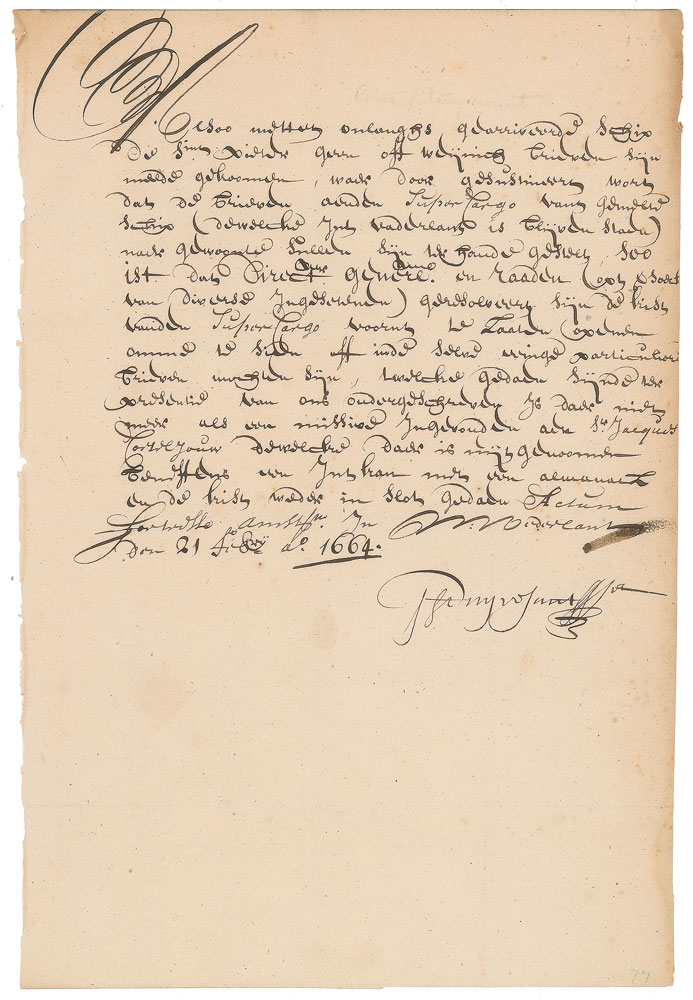 Alsoo mettet onlanghs gearriveerde Schip
de Sint Pieter geen off weijnich brieven sijn
meede gekoomen, waer door gesustineert wort
dat de brieven aenden SuperCargo vant gemelte
Schip (dewelcke Int vaderlant is blijven staen)
naer gewoonte sullen sijn ter hande gestelt, Soo
ist dat Direct. Generl. en Raaden (opt versoeck
van diverse Ingesetenen) geresolveert sijn de kist
vanden SuperCargo voornt te laaten openen
omme te sien off inde selve eenige particuliere
brieven mochten sijn, twelcke gedaen sijnde ter
presentie van ons ondergeschreven Is daer niet
meer als een missive Ingevonden aen Sr Jacques
Corteljouw dewelcke daer is uijt genoomen
beneffens een Int kan met een almanack
en de kist weder in slot gedaen Actum
Fortresse Amst. In N. Nederlant
den 21 Feb ao 1664.
P Stuyvesant
77